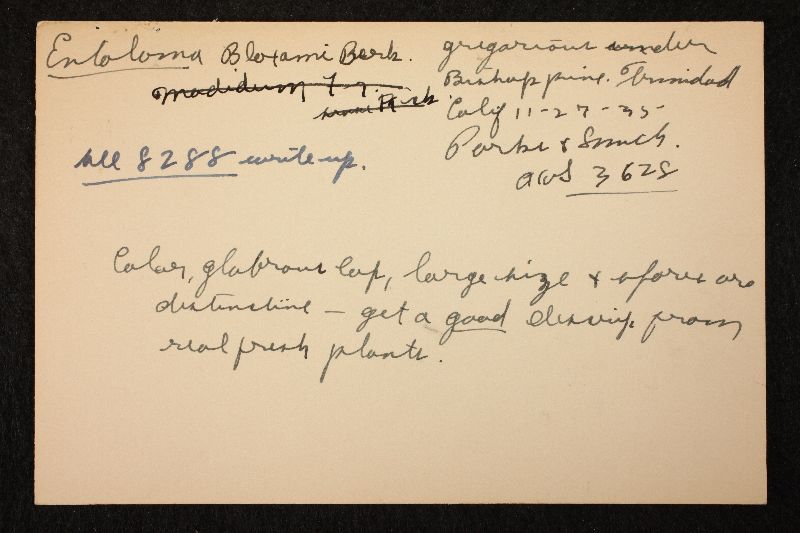 Entoloma Bloxami Berk.
madidum Fr.
gregarious under
Bishop pine. Trinidad
Calif 11-27-35
Parks & Smith.
AHS 3628
see 8288 write-up.
Color, glabrous cap, large size & spores are
distinctive — get a good descrip. from
real fresh plants.